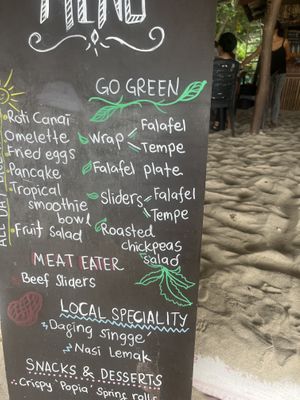 MENU
GO GREEN
Roti Canai
Omelette
Fried eggs
Pancake
Tropical
smoothie
bowl
Fruit Salad
ALL DAY
Wrap
Falafel
Tempe
Falafel plate
Sliders
Falafel
Tempe
Roasted
chickpeas
salad
MEAT EATER
Beef Sliders
LOCAL SPECIALITY
Nasi Lemak
SNACKS & DESSERTS
Crispy 'Popia' Spring rolls